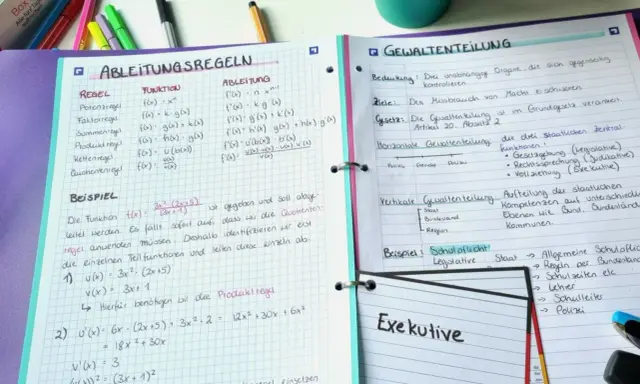 Box
ABLEITUNGSREGELN
REGEL FUNKTION ABLEITUNG
Potenzregel f(x) = xⁿ f'(x) = n · xⁿ⁻¹
Faktorregel f(x) = k · g(x) f'(x) = k · g'(x)
Summenregel f(x) = g(x) + k(x) f'(x) = g'(x) + k'(x)
Produktregel f(x) = h(x) · g(x)
Kettenregel f(x) = u(v(x))
Quotientenregel f(x) = u(x)/v(x)
BEISPIEL
Die Funktion f(x) = 3x² · (2x+5) / (3x+1) ist gegeben und soll abge-
leitet werden. Es fällt sofort auf, dass wir die Quotienten-
regel anwenden müssen. Deshalb identifizieren wir erst
die einzelnen Teilfunktionen und leiten diese einzeln ab.
1) u(x) = 3x² · (2x+5)
v(x) = 3x + 1
↳ Hierfür benötigen wir die Produktregel
2) u'(x) = 6x · (2x+5) + 3x² · 2 = 12x² + 30x + 6x²
= 18x² + 30x
v'(x) = 3
(v(x))² = (3x+1)²
einsetzen
GEWALTENTEILUNG
Bedeutung: Drei unabhängige Organe, die sich gegenseitig
kontrollieren
Ziele: Den Missbrauch von Macht erschweren
Gesetz: Die Gewaltenteilung ist im Grundgesetz verankert
Artikel 20. Absatz 2
Horizontale Gewaltenteilung: die drei staatlichen Zentral-
funktionen:
• Gesetzgebung (Legislative)
• Rechtsprechung (Judikative)
• Vollziehung (Exekutive)
Vertikale Gewaltenteilung: Aufteilung der staatlichen
Staat Kompetenzen auf unterschiedliche
Bundesland Ebenen wie Bund, Bundesländer
Region Kommunen.
Beispiel: Schulpflicht
Legislative Staat → Allgemeine Schulpflicht
→ Regeln per Bundesland
→ Schulzeiten etc.
→ Lehrer
→ Schulleiter
→ Polizei
Exekutive